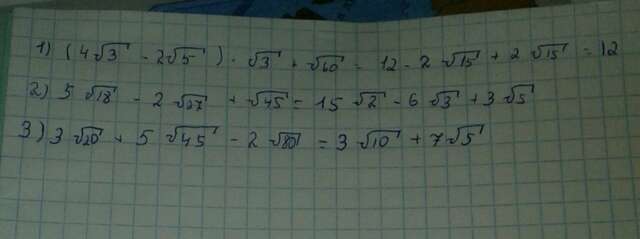 1) (4√3 - 2√5) · √3 + √60 = 12 - 2√15 + 2√15 = 12
2) 5√18 - 2√27 + √45 = 15√2 - 6√3 + 3√5
3) 3√20 + 5√45 - 2√80 = 3√10 + 7√5